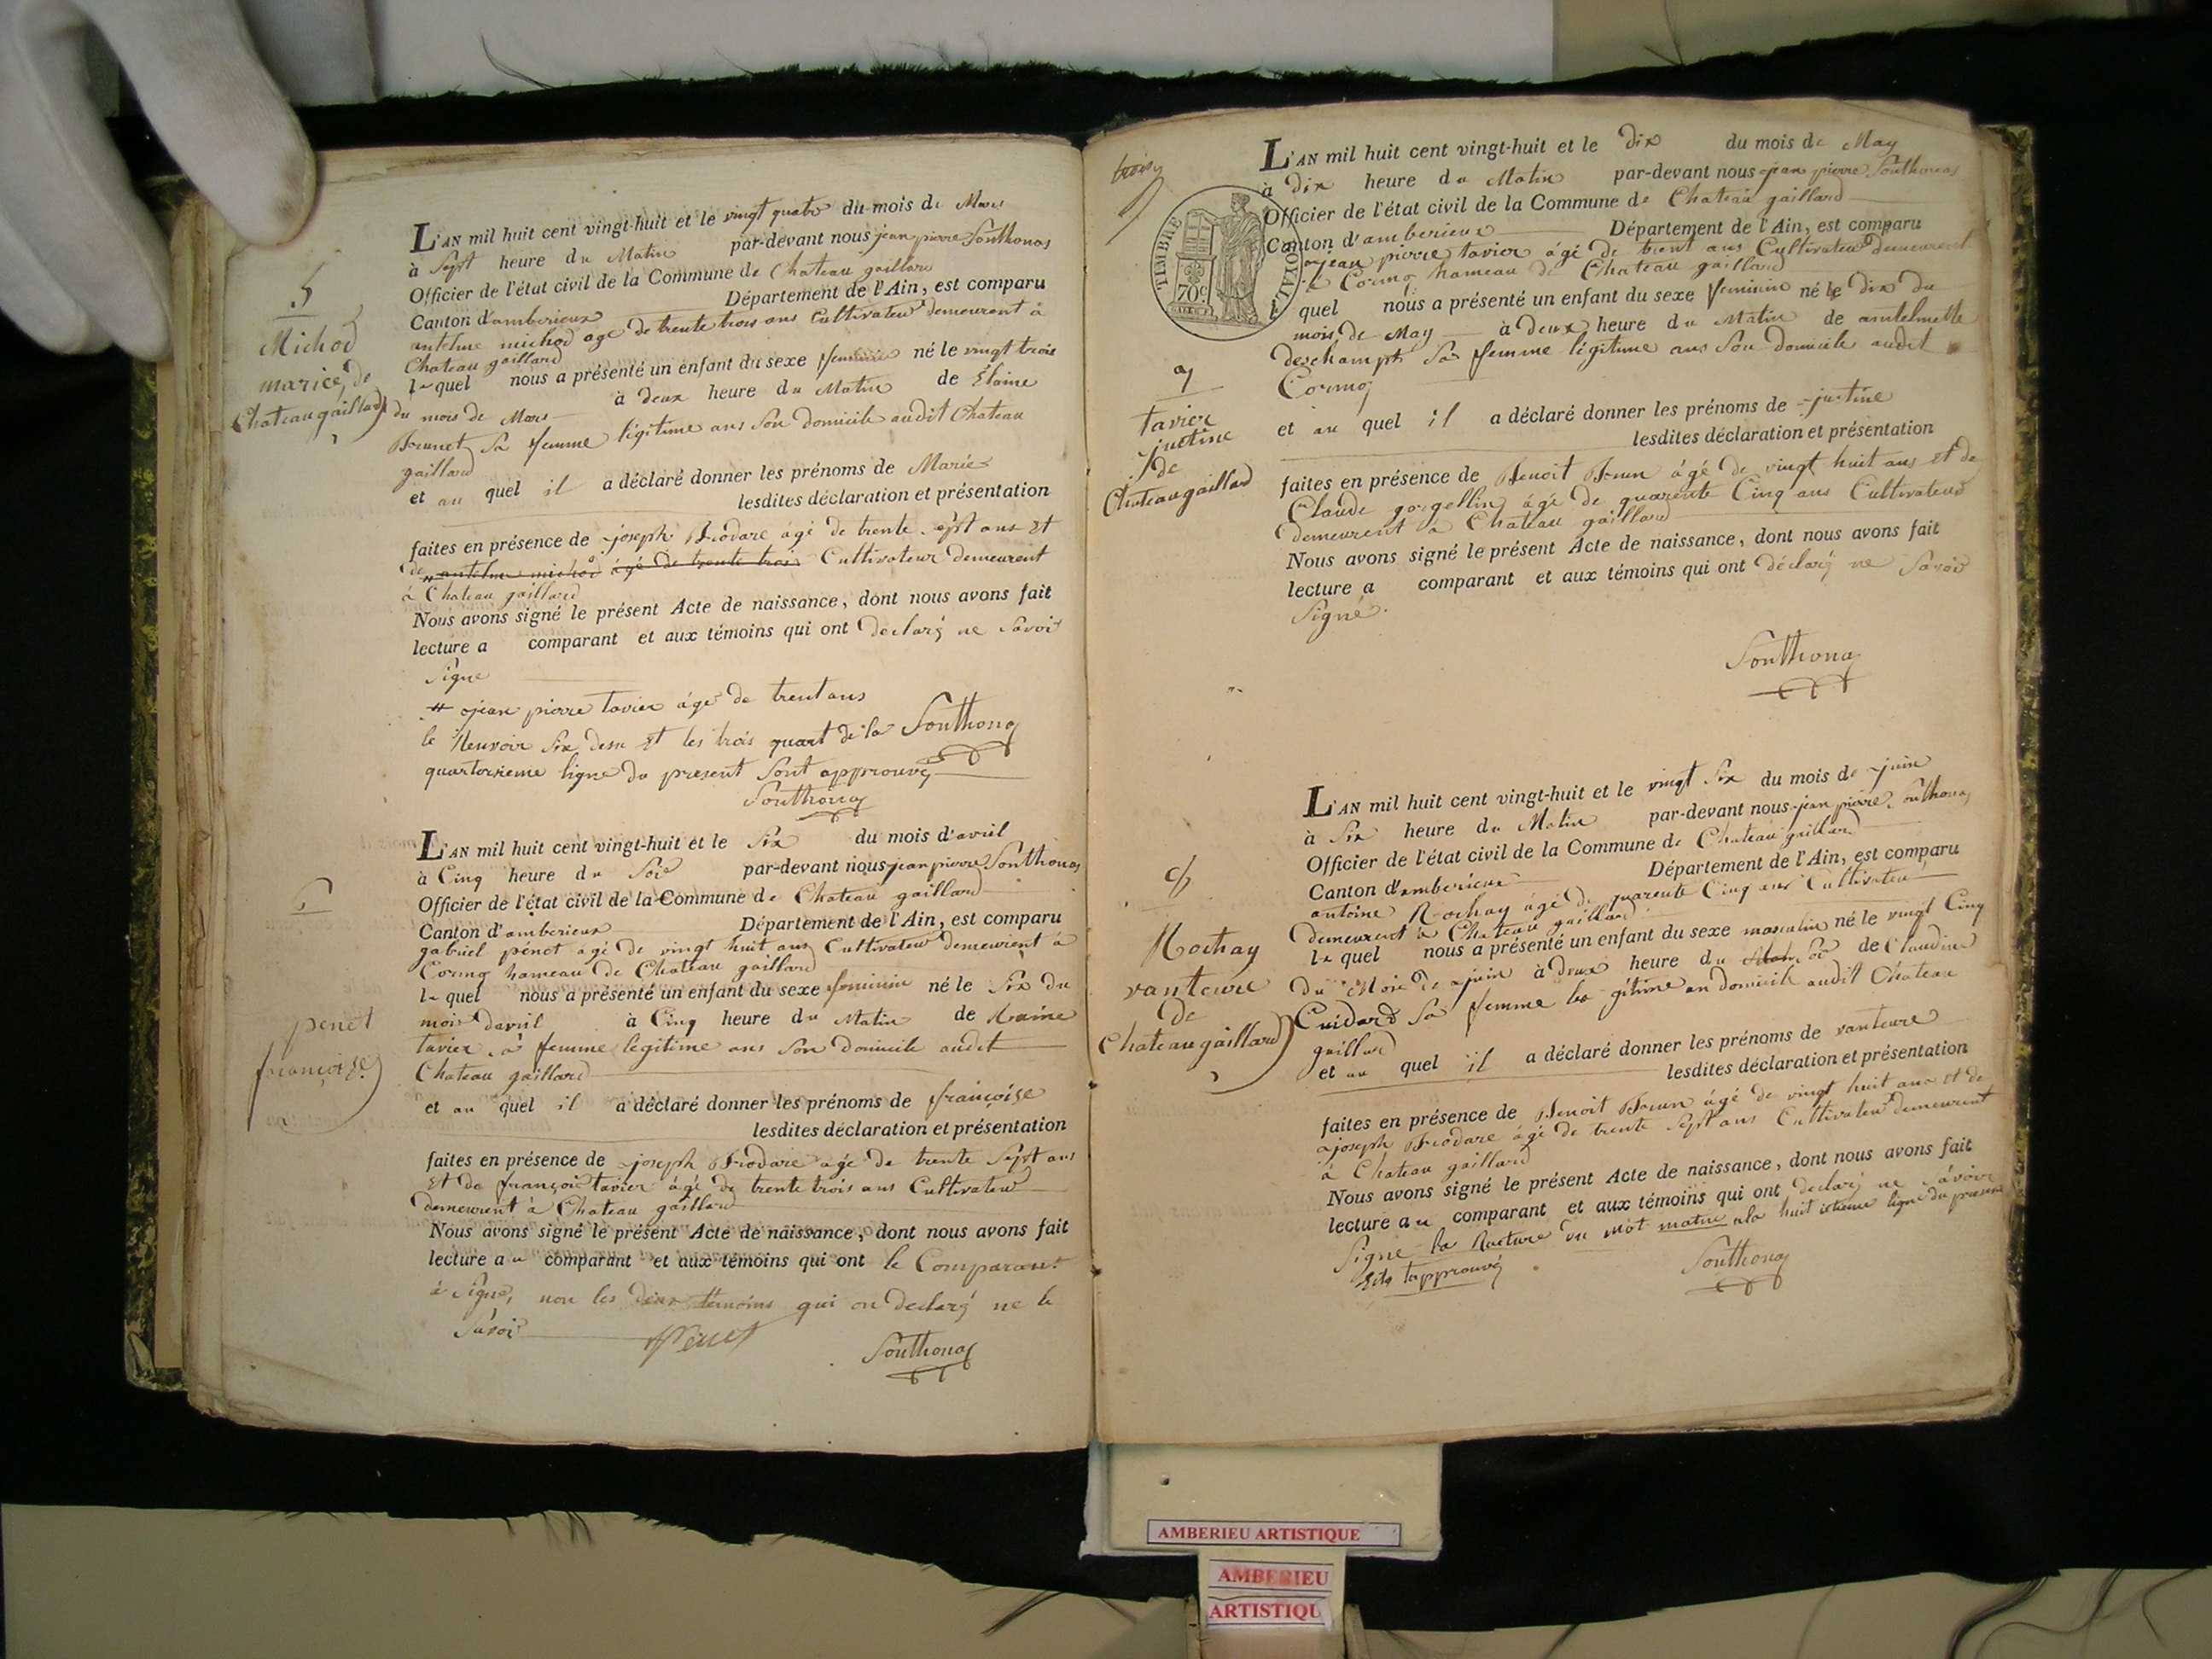 5
Michod
marie, de
Chateaugaillard
L'AN mil huit cent vingt-huit et le vingt quatre du mois de Mars
à Sept heure du Matin par-devant nous jean pierre Southonas
Officier de l'état civil de la Commune de Chateau gaillard
Canton d'amberieux Département de l'Ain, est comparu
antelme michod agé de trente trois ans Cultivateur demeurent à
Chateau gaillard
lequel nous a présenté un enfant du sexe feminin né le vingt trois
du mois de Mars à deux heure du Matin de
Brunet sa femme légitime ans son domicile audit Chateau
gaillard
et au quel il a déclaré donner les prénoms de Marie
lesdites déclaration et présentation
faites en présence de joseph Brodare agé de trente sept ans et
de antelme michod agé de trente trois Cultivateur demeurent
à Chateau gaillard
Nous avons signé le présent Acte de naissance, dont nous avons fait
lecture a comparant et aux témoins qui ont declaré ne savoir
Signe
# jean pierre tavier agé de trent ans
le Renvoir six desu et les trois quart de la Southonas
quatorzieme ligne du present sont approuvé
Southonas
6
penet
françoise
L'AN mil huit cent vingt-huit et le Six du mois d'avril
à Cinq heure du Soir par-devant nous jean pierre Southonas
Officier de l'état civil de la Commune de Chateau gaillard
Canton d'amberieux Département de l'Ain, est comparu
gabriel pénet agé de vingt huit ans Cultivateur demeurent à
Cormoz hameau de Chateau gaillard
lequel nous a présenté un enfant du sexe feminin né le Six du
mois davril à Cinq heure du Matin de
tavier sa femme légitime ans son domicile audit
Chateau gaillard
et au quel il a déclaré donner les prénoms de françoise
lesdites déclaration et présentation
faites en présence de joseph Brodare agé de trente sept ans
et de françoi tavier agé de trente trois ans Cultivateur
demeurent à Chateau gaillard
Nous avons signé le présent Acte de naissance, dont nous avons fait
lecture au comparant et aux témoins qui ont le Comparant
à signé, non les deux témoins qui on declaré ne le
savoir
Penet
Southonas
TIMBRE ROYAL
70c
7
tavier
justine
de
Chateaugaillard
L'AN mil huit cent vingt-huit et le dix du mois de May
à dix heure du Matin par-devant nous jean pierre Southonas
Officier de l'état civil de la Commune de Chateau gaillard
Canton d'amberieux Département de l'Ain, est comparu
jean pierre tavier agé de trent ans Cultivateur demeurent
à Cormoz hameau de Chateau gaillard
lequel nous a présenté un enfant du sexe feminin né le dix du
mois de May à deux heure du Matin de antelmette
deschamps sa femme légitime ans son domicile audit
Cormoz
et au quel il a déclaré donner les prénoms de justine
lesdites déclaration et présentation
faites en présence de Benoit Brun agé de vingt huit ans et de
Claude gorgellin agé de quarente Cinq ans Cultivateur
demeurent à Chateau gaillard
Nous avons signé le présent Acte de naissance, dont nous avons fait
lecture a comparant et aux témoins qui ont déclaré ne savoir
Signé.
Southonas
8
Rochay
vanteure
de
Chateaugaillard
L'AN mil huit cent vingt-huit et le vingt six du mois de juin
à six heure du Matin par-devant nous jean pierre Southonas
Officier de l'état civil de la Commune de Chateau gaillard
Canton d'amberieux Département de l'Ain, est comparu
antoine Rochay agé de quarente Cinq ans Cultivateur
demeurent à Chateau gaillard
lequel nous a présenté un enfant du sexe masculin né le vingt Cinq
du Mois de juin à deux heure du Soir de Claudine
Cuidard sa femme legitime an domicile audit Chateau
gaillard
et au quel il a déclaré donner les prénoms de vanteure
lesdites déclaration et présentation
faites en présence de Benoit Brun agé de vingt huit ans et de
joseph Brodare agé de trente sept ans Cultivateur demeurent
à Chateau gaillard
Nous avons signé le présent Acte de naissance, dont nous avons fait
lecture au comparant et aux témoins qui ont declaré ne savoir
Signe la Rature du mot matin ala huit ictieme ligne du present
Southonas
AMBERIEU ARTISTIQUE
AMBERIEU
ARTISTIQU